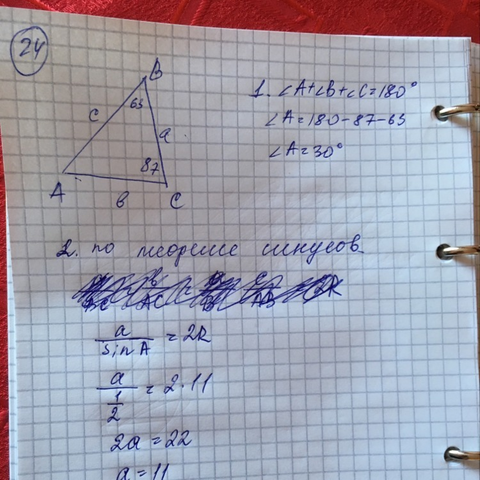 24
B
63
c
a
87
A
b
C
1. ∠A+∠B+∠C=180°
∠A=180-87-63
∠A=30°
2. по теореме синусов
a/sinA = 2R
a/(1/2) = 2·11
2a=22
a=11